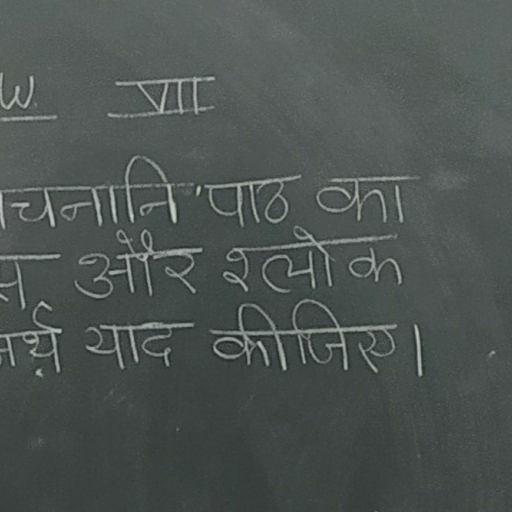 W. VII
चनानि' पाठ का
और श्लोक
याद कीजिए।